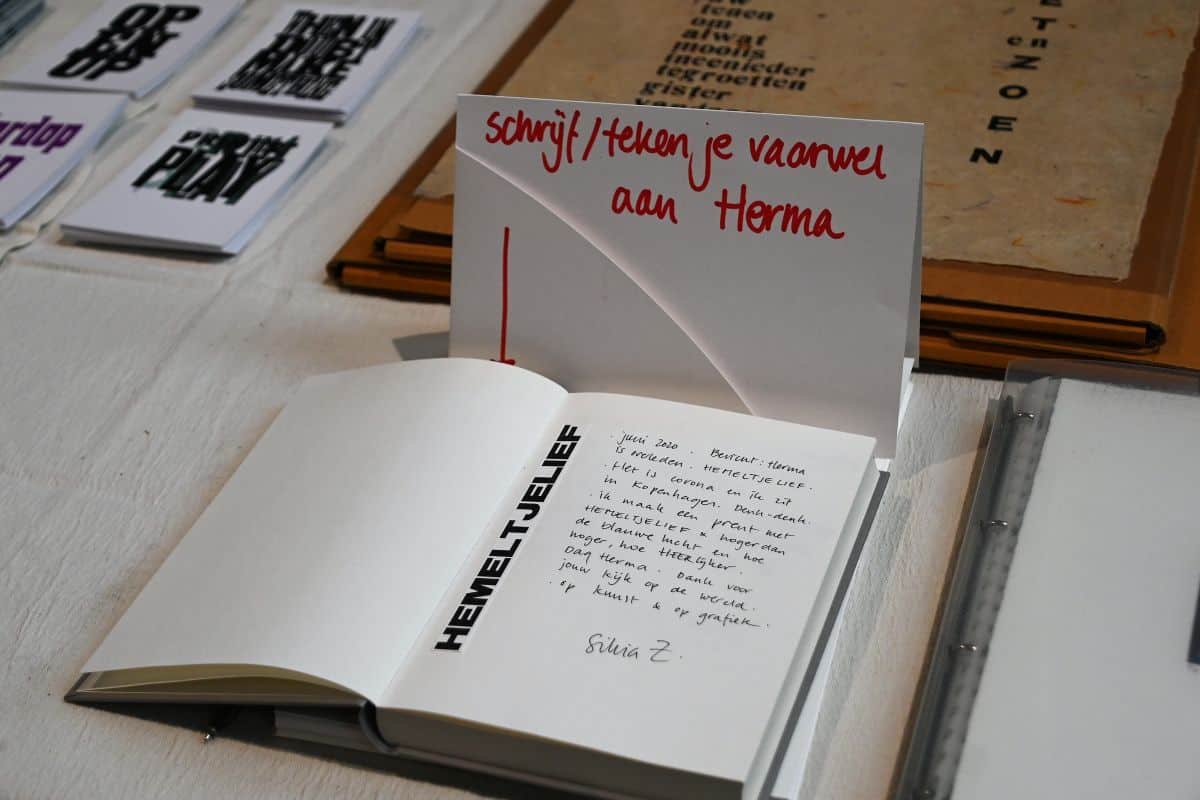 OP
EN
UP
PLAY
tenen
om
alwat
moois
ineenieder
tegroetten
gister
en
Z
O
E
N
schrijf/teken je vaarwel
aan Herma
HEMELTJELIEF
. juni 2020 . Bericht: Herma
is overleden . HEMELTJELIEF.
. Het is corona en ik zit
in Kopenhagen. Denk-denk.
. ik maak een prent met
HEMELTJELIEF & hoger dan
de blauwe lucht en hoe
hoger, hoe HEERlijker.
Dag Herma . Dank voor
jouw kijk op de wereld.
. op kunst & op grafiek .
Silvia Z.